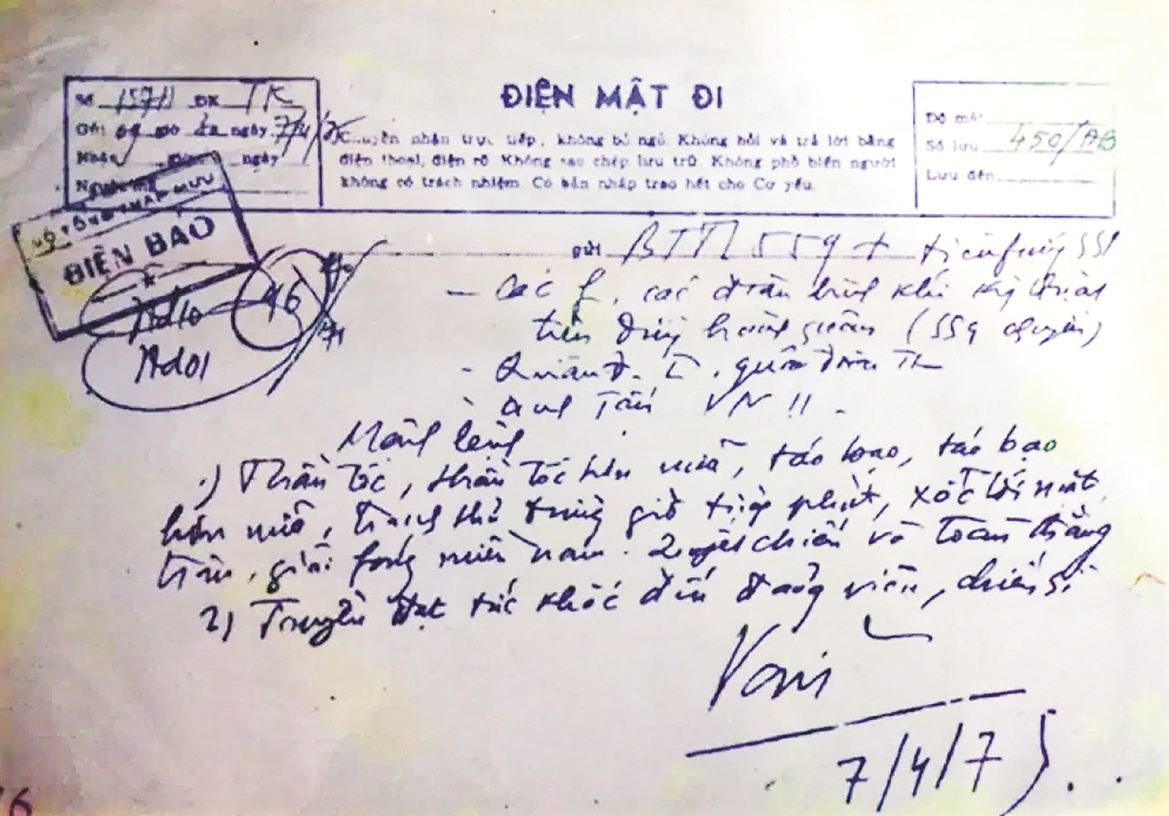 ĐIỆN MẬT ĐI
Số 1574 ĐK TK
Gửi 09 giờ ngày 7/4/75
Nhận ngày
Người
Chuyển nhận trực tiếp, không bỏ ngỏ. Không hỏi và trả lời bằng
điện thoại, điện rõ. Không sao chép lưu trữ. Không phổ biến người
không có trách nhiệm. Có bản nháp trao hết cho Cơ yếu.
Độ mật
Số lưu 450/AB
Lưu đến
BỘ TỔNG THAM MƯU
ĐIỆN BÁO
46
gửi BTTL 559 + tiền fương 559
- Các f, các đoàn binh khí kỹ thuật
trên đường hành quân (559 chuyển)
- Quân đ. I, quân đoàn
- Anh Tấn VN11.
Mệnh lệnh
1) Thần tốc, thần tốc hơn nữa, táo bạo, táo bạo
hơn nữa, tranh thủ từng giờ từng phút, xốc tới mặt
trận, giải fóng miền nam. Quyết chiến và toàn thắng
2) Truyền đạt tức khắc đến đảng viên, chiến sĩ
Văn
7/4/75.
6